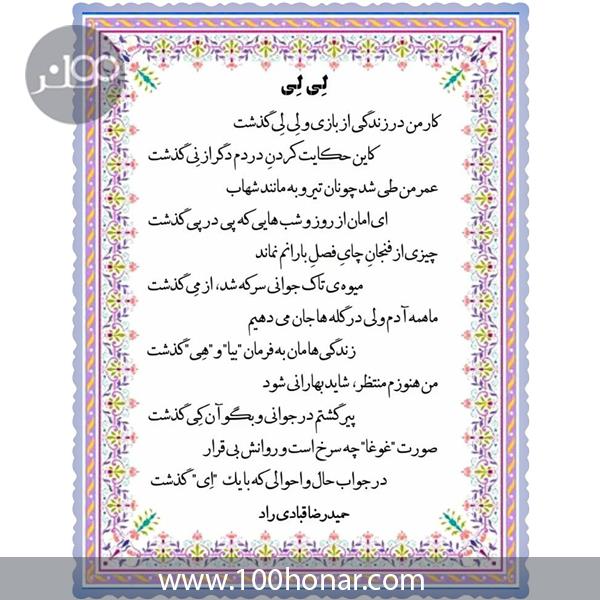 100هنر
لِی لِی
کار من در زندگی از بازی و لِی لِی گذشت
کاین حکایت کردنِ دردم دگر از نِی گذشت
عمر من طی شد چونان تیر و به مانند شهاب
ای امان از روز و شب هایی که پی در پی گذشت
چیزی از فنجانِ چایِ فصلِ بارانم نماند
میوه ی تاک جوانی سرکه شد، از مِی گذشت
ما همه آدم ولی در گله ها جان می دهیم
زندگی هامان به فرمان "بیا" و "هِی" گذشت
من هنوزم منتظر، شاید بهارانی شود
پیر گشتم در جوانی و بگو آن کِی گذشت
صورت "غوغا" چه سرخ است و روانش بی قرار
در جواب حال و احوالی که با یك "اِی" گذشت
حمیدرضا قبادی راد
www.100honar.com